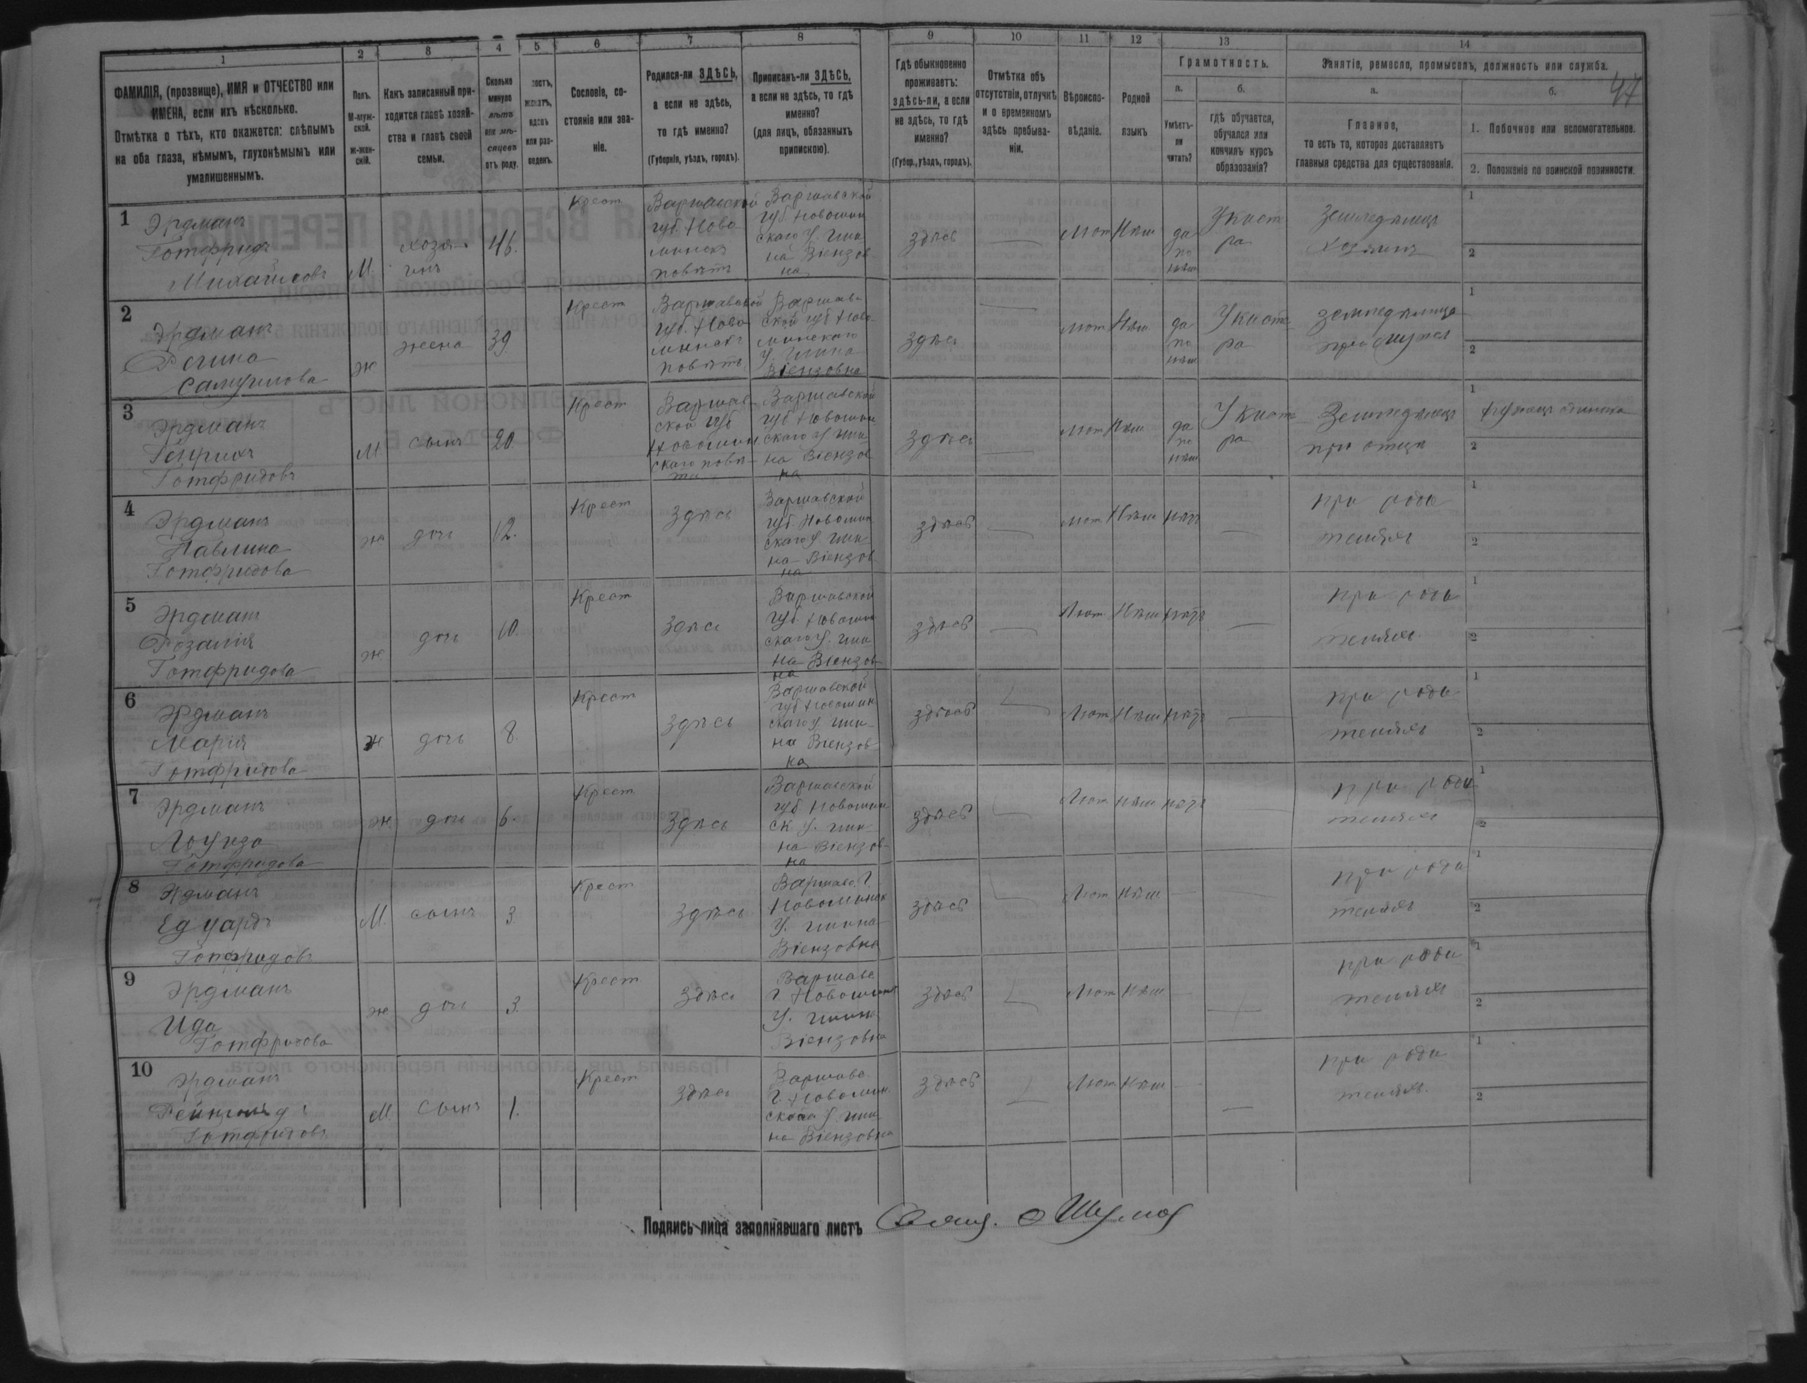 1 2 3 4 5 6 7 8 9 10 11 12 13 14
ФАМИЛІЯ, (прозвище), ИМЯ и ОТЧЕСТВО или
ИМЕНА, если ихъ нѣсколько.
Отмѣтка о тѣхъ, кто окажется: слѣпымъ
на оба глаза, нѣмымъ, глухонѣмымъ или
умалишеннымъ.
Полъ.
М-муж-
ской.
ж-жен-
скій.
Какъ записанный при-
ходится главѣ хозяй-
ства и главѣ своей
семьи.
Сколько
минуло
лѣтъ
или мѣ-
сяцевъ
отъ роду.
или раз-
веденъ.
Сословіе, со-
стояніе или зва-
ніе.
Родился-ли ЗДѢСЬ,
а если не здѣсь,
то гдѣ именно?
(Губернія, уѣздъ, городъ).
Приписанъ-ли ЗДѢСЬ,
а если не здѣсь, то гдѣ
именно?
(для лицъ, обязанныхъ
припискою).
Гдѣ обыкновенно
проживаетъ:
здѣсь-ли, а если
не здѣсь, то гдѣ
именно?
(Губер., уѣздъ, городъ).
Отмѣтка объ
отсутствіи, отлучкѣ
и о временномъ
здѣсь пребыва-
ніи.
Вѣроиспо-
вѣданіе.
Родной
языкъ
Грамотность.
а.
Умѣетъ-
ли
читать?
б.
гдѣ обучается,
обучался или
кончилъ курсъ
образованія?
Занятія, ремесло, промыселъ, должность или служба.
47
а.
Главное,
то есть то, которое доставляетъ
главныя средства для существованія.
б.
1. Побочное или вспомогательное.
2. Положеніе по воинской повинности.
1
Эрдманъ
Готфридъ
Михайловъ
М.
хозя-
инъ
45.
Крест
Варшавской
губ. Ново
минск
повѣтъ
Варшавской
губ Новомин
скаго у. гми
на Віензов
на
здѣсь
Лют
Нѣм
да
по
нѣм
Земледѣлецъ
хозяинъ
1
2
2
Эрдманъ
Регина
Самуилова
ж
жена
39
Крест
Варшавской
губ. Ново
минск
повѣтъ
Варшав-
ской губ Ново
минскаго
у. гмина
Віензовна
здѣсь
Лют
Нѣм
да
по
нѣм
земледѣлица
при мужѣ
1
2
3
Эрдманъ
Генрихъ
Готфридовъ
М.
сынъ
20.
Крест
Варшав
ской губ
Новомин
скаго повѣ
та
Варшавской
губ Новомин
скаго у гми
на Віензов
на
здѣсь
Лют
Нѣм
да
по
нѣм
Земледѣлецъ
при отцѣ
1
2
4
Эрдманъ
Павлина
Готфридова
ж
дочь
12.
Крест
здѣсь
Варшавской
губ. Новомин
скаго у. гми-
на Віензов
на
здѣсь
Лют
Нѣм
нѣтъ
при роди
теляхъ
1
2
5
Эрдманъ
Розалія
Готфридова
ж
дочь
10.
Крест
здѣсь
Варшавской
губ. Новомин
скаго у. гми
на Віензов
на
здѣсь
Лют
Нѣм
нѣтъ
при роди
теляхъ
1
2
6
Эрдманъ
Марія
Готфридова
ж
дочь
8.
Крест
здѣсь
Варшавской
губ Новомин
скаго у. гми-
на Віензов
на
здѣсь
Лют
Нѣм
нѣтъ
при роди
теляхъ
1
2
7
Эрдманъ
Лоуиза
Готфридова
ж.
дочь
6.
Крест
здѣсь
Варшавской
губ Новомин
ск у. гми-
на Віензов
на
здѣсь
Лют
нѣм
нѣтъ
при роди
теляхъ
1
2
8
Эрдманъ
Едуардъ
Готфридовъ
М.
сынъ
3
Крест
здѣсь
Варшавс. Г.
Новоминск
у. гмина
Віензовна
здѣсь
Лют
нѣм
при роди
теляхъ
1
2
9
Эрдманъ
Ида
Готфридова
ж
дочь
3.
Крест
здѣсь
Варшавс
г. Новоминск
у. гмина
Віензовна
здѣсь
Лют
Нѣм
при роди
теляхъ
1
2
10
Эрдманъ
Рейнгольдъ
Готфридовъ
М
сынъ
1.
Крест
здѣсь
Варшавс
г. Новомин
скаго у гми
на Віензовна
здѣсь
Лют
нѣм
при роди
теляхъ
1
2
Подпись лица заполнявшаго листъ